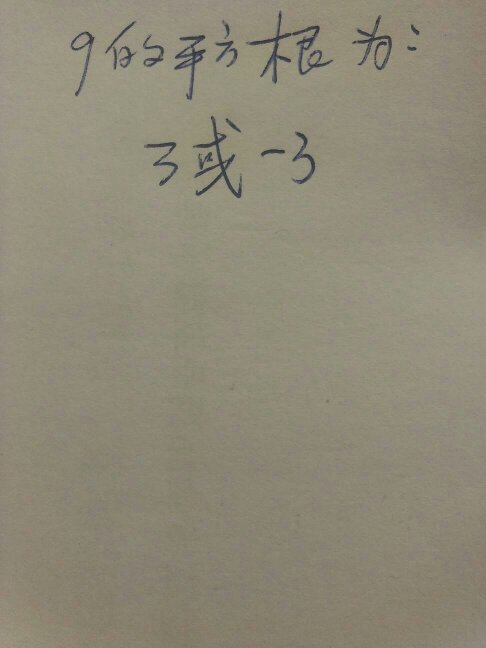 9的平方根为:
3或-3